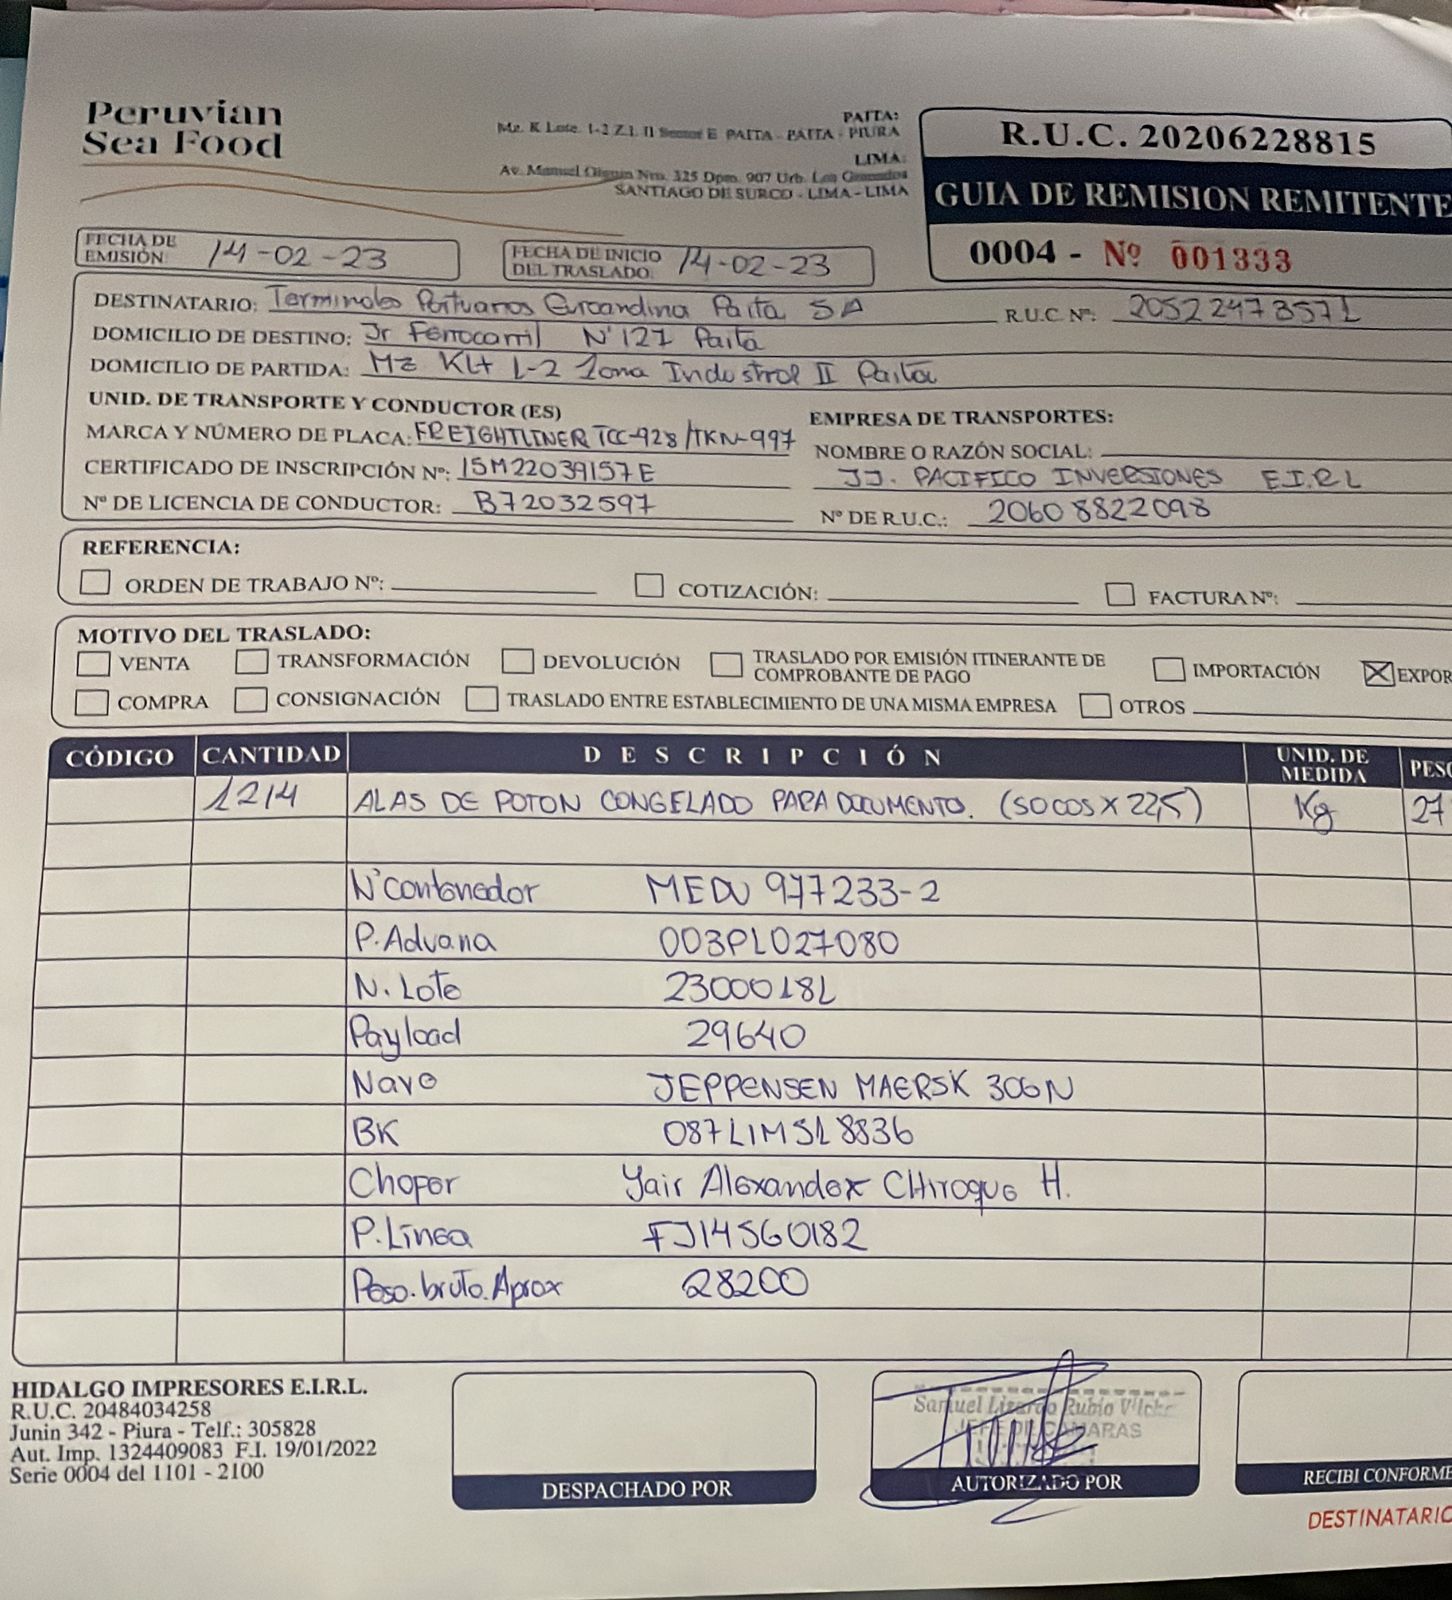 Peruvian
Sea Food
PAITA:
Mz. K Lote. 1-2 Z.I. II Sector E PAITA - PAITA - PIURA
LIMA:
Av. Manuel Olguin Nro. 325 Dpm. 907 Urb. Los Granados
SANTIAGO DE SURCO - LIMA - LIMA
R.U.C. 20206228815
GUIA DE REMISION REMITENTE
0004 - Nº 001333
FECHA DE EMISIÓN: 14-02-23
FECHA DE INICIO DEL TRASLADO: 14-02-23
DESTINATARIO: Terminales Portuarios Euroandina Paita SA R.U.C Nº: 20522473571
DOMICILIO DE DESTINO: Jr Ferrocarril Nº 127 Paita
DOMICILIO DE PARTIDA: Mz K Lt 1-2 Zona Industrial II Paita
UNID. DE TRANSPORTE Y CONDUCTOR (ES)
MARCA Y NÚMERO DE PLACA: FREIGHTLINER TCC-928/TKN-997
CERTIFICADO DE INSCRIPCIÓN Nº: 15M22039157E
Nº DE LICENCIA DE CONDUCTOR: B72032597
EMPRESA DE TRANSPORTES:
NOMBRE O RAZÓN SOCIAL:
JJ. PACIFICO INVERSIONES E.I.R.L
Nº DE R.U.C.: 20608822098
REFERENCIA:
ORDEN DE TRABAJO Nº: COTIZACIÓN: FACTURA Nº:
MOTIVO DEL TRASLADO:
VENTA TRANSFORMACIÓN DEVOLUCIÓN TRASLADO POR EMISIÓN ITINERANTE DE COMPROBANTE DE PAGO IMPORTACIÓN EXPOR
COMPRA CONSIGNACIÓN TRASLADO ENTRE ESTABLECIMIENTO DE UNA MISMA EMPRESA OTROS
CÓDIGO CANTIDAD DESCRIPCIÓN UNID. DE MEDIDA PESO
1214 ALAS DE POTON CONGELADO PARA DOCUMENTO. (SOCOS X 22,5) Kg 27
Nº Contenedor MEDU 977233-2
P. Aduana 003PL027080
N. Lote 2300018L
Payload 29640
Nave JEPPENSEN MAERSK 306N
BK 087LIMSL8836
Chofer Yair Alexander CHiroque H.
P. Linea FJ14560182
Peso. bruto. Aprox 28200
HIDALGO IMPRESORES E.I.R.L.
R.U.C. 20484034258
Junin 342 - Piura - Telf.: 305828
Aut. Imp. 1324409083 F.I. 19/01/2022
Serie 0004 del 1101 - 2100
DESPACHADO POR
Samuel Lizardo Rubio Vilche
JEFE DE CAMARAS
AUTORIZADO POR
RECIBI CONFORME
DESTINATARIO